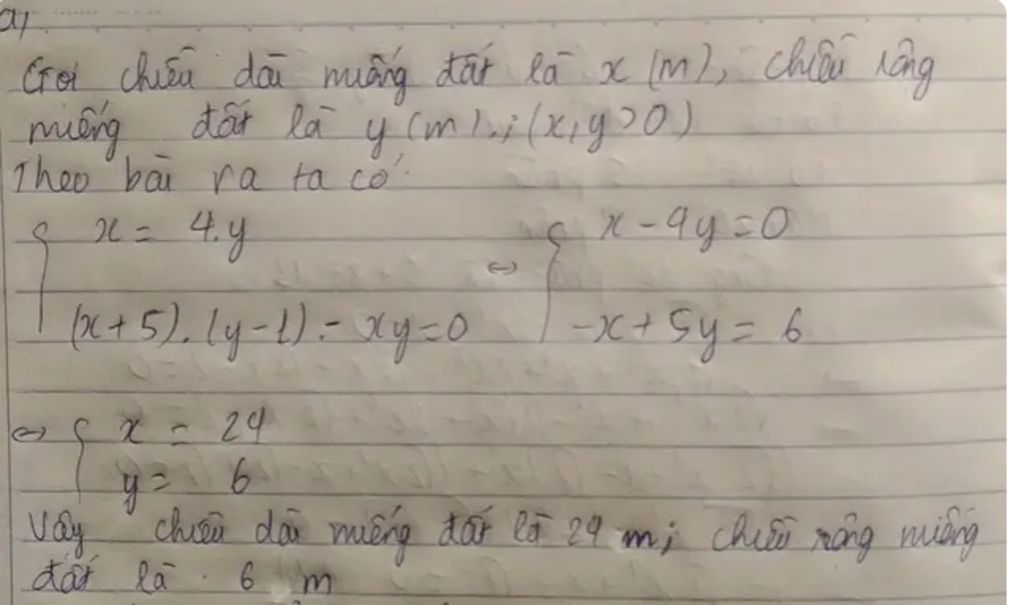 a,
Gọi chiều dài miếng đất là x (m), chiều rộng
miếng đất là y (m).; (x, y > 0)
Theo bài ra ta có:
{ x = 4.y <=> { x - 4y = 0
(x+5).(y-1) - xy = 0 -x + 5y = 6
<=> { x = 24
y = 6
Vậy chiều dài miếng đất là 24 m; chiều rộng miếng
đất là 6 m